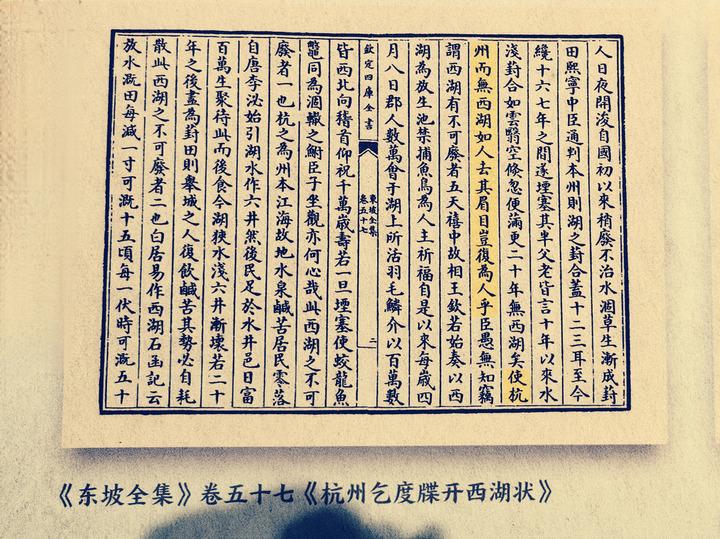 人日夜開浚自國初以來稍廢不治水涸草生漸成葑
田熙寧中臣通判本州則湖之葑合蓋十二三耳至今
纔十六七年之間遂堙塞其半父老皆言十年以來水
淺葑合如雲翳空倐忽便滿更二十年無西湖矣使杭
州而無西湖如人去其眉目豈復為人乎臣愚無知竊
謂西湖有不可廢者五天禧中故相王欽若始奏以西
湖為放生池禁捕魚鳥為人主祈福自是以來每歲四
月八日郡人數萬會于湖上所活羽毛鱗介以百萬數
欽定四庫全書
東坡全集
卷五十七
二
皆西北向稽首仰祝千萬歲壽若一旦堙塞使蛟龍魚
鼈同為涸轍之鮒臣子坐觀亦何心哉此西湖之不可
廢者一也杭之為州本江海故地水泉鹹苦居民零落
自唐李泌始引湖水作六井然後民足於水井邑日富
百萬生聚待此而後食今湖狹水淺六井漸壞若二十
年之後盡為葑田則舉城之人復飲鹹苦其勢必自耗
散此西湖之不可廢者二也白居易作西湖石函記云
放水溉田每減一寸可溉十五頃每一伏時可溉五十
《东坡全集》卷五十七《杭州乞度牒开西湖状》